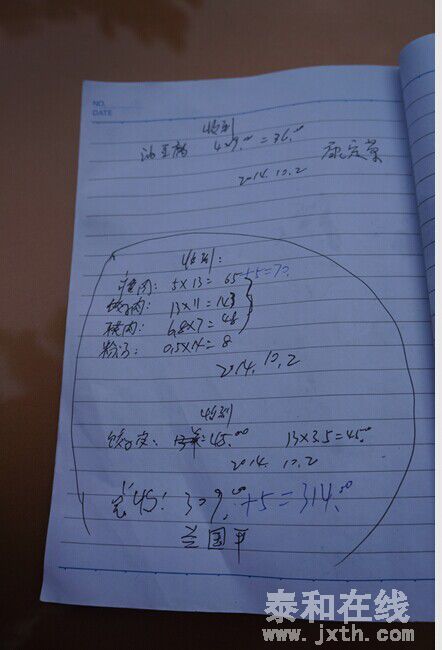 NO.
DATE
收到
油豆腐 4×9.00=36.00
2014.10.2
收到:
瘦肉: 5×13=65+5=70
饺子肉: 13×11=143
精肉: 6.8×7=48
粉子: 0.5×14=8
2014.10.2
收到
饺子皮: =45.00 13×3.5=45.00
2014.10.2
实收: 309.00+5=314.00
兰国平
泰和在线
www.jxth.com